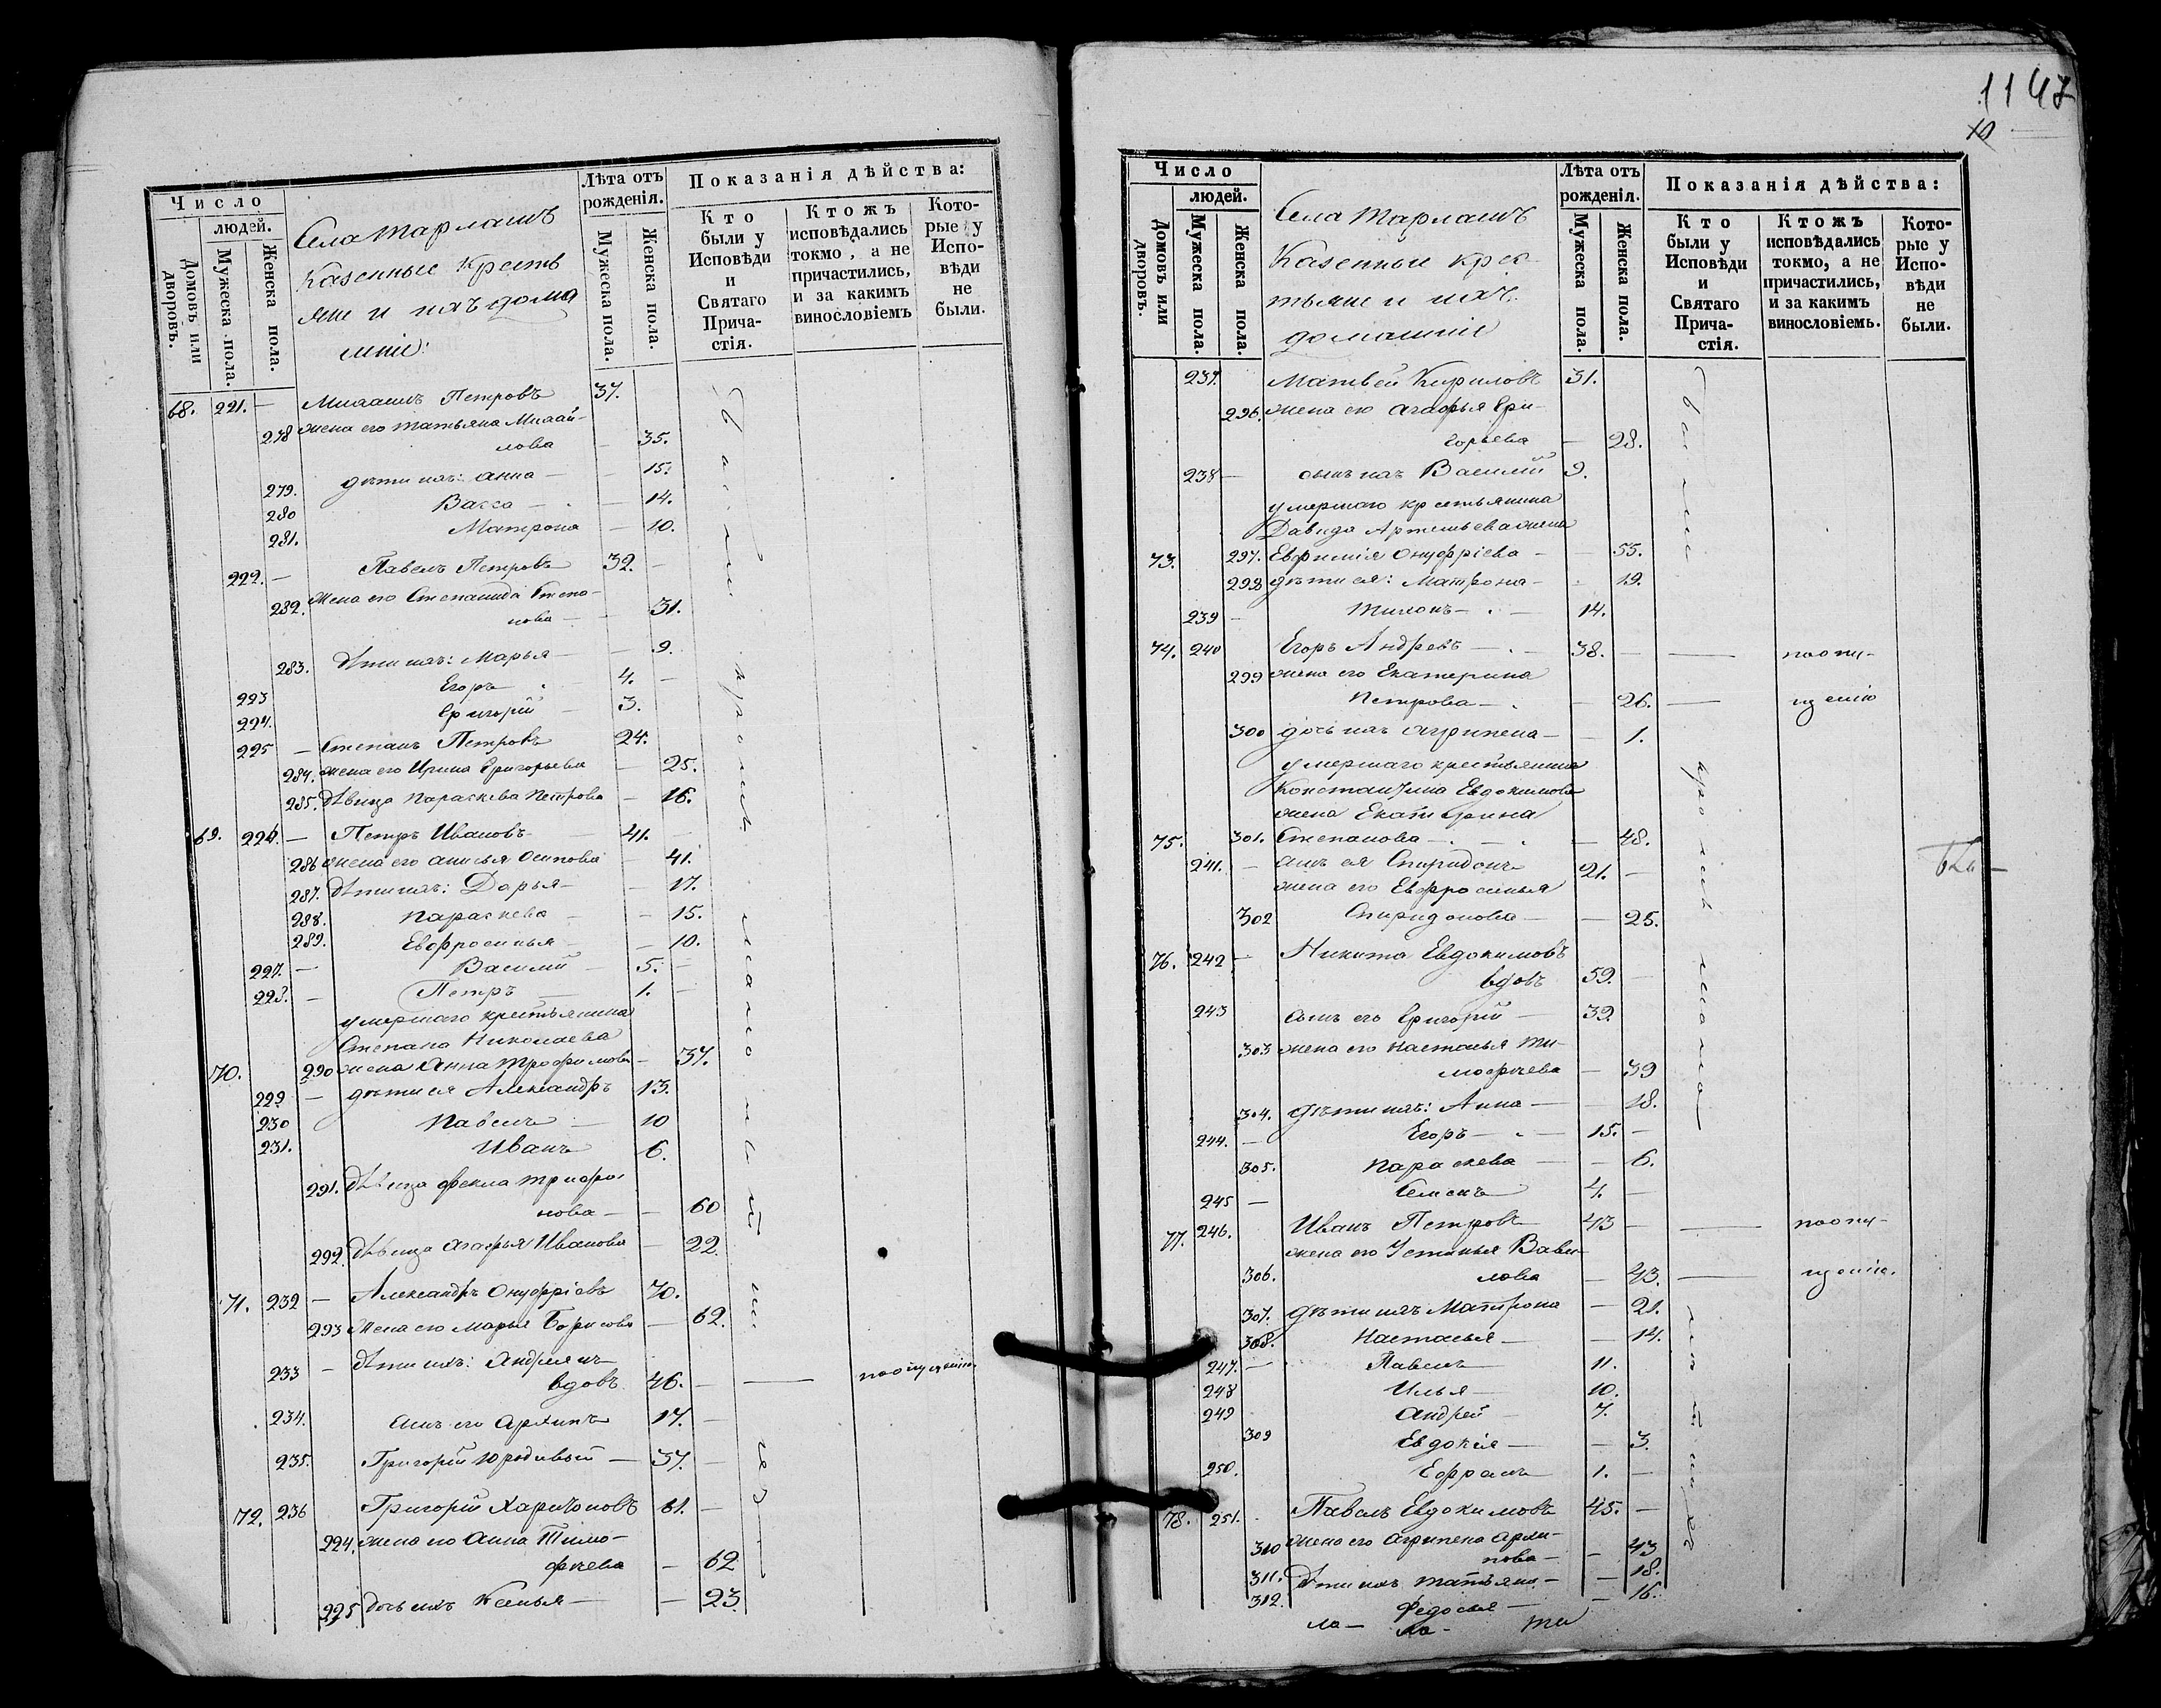 Число
людей.
Домовъ или дворовъ.
Мужеска пола.
Женска пола.
Села Тарлашъ
Казенные Кресть
яне и ихъ дома
шніе:
Лѣта отъ
рожденія.
Мужеска пола.
Женска пола.
Показанія дѣйства:
Кто
были у
Исповѣди
и
Святаго
Прича-
стія.
Ктожъ
исповѣдались
токмо, а не
причастились,
и за какимъ
винословіемъ
Кото-
рые у
Испо-
вѣди
не
были.
68. 221. — Михаилъ Петровъ 37.
278 жена его Татьяна Михай-
лова — 35.
279. дѣти ихъ: Анна — — 15.
280 Васса — — 14.
281. Матрона — 10.
222. — Павелъ Петровъ 32. —
282. Жена его Степанида Степа-
нова — — 31.
283. дѣти ихъ: Марья — — 9.
223 Егоръ 4. —
224. Григорій — 3.
225 — Степанъ Петровъ 24.
284. жена его Ирина Григорьева — 25.
285. дѣвица Параскева Петрова — 16.
69. 226. — Петръ Ивановъ — 41. —
286 жена его Анисья Осипова — 41.
287. дѣти ихъ: Дарья — — 17.
288. Параскева — — 15.
289. Евфросинья — — 10.
227. — Василій — 5. —
228. — Петръ — 1. —
умершаго крестьянина
Степана Николаева
70. 290 жена Анна Трофимова — 37.
229 — дѣти ея Александръ 13.
230 Павелъ — 10
231. Иванъ 6.
291. дѣвица Фекла Трифо-
нова — — 60
292. дѣвица Агафья Иванова — 22.
71. 232 — Александръ Онуфріевъ 70.
293 Жена его Марья Борисова — 62.
233 — дѣти ихъ: Андреянъ
вдовъ 46. — — по опущенію
234. сынъ его Архипъ 17. —
235. Григорій Юродивый — 37. —
72. 236 Григорій Харитоновъ 61. —
294. жена его Анна Тимо-
фѣева — 62
295 дочь ихъ Ксенья — — 23.
1147
10
Число
людей.
Домовъ или дворовъ.
Мужеска пола.
Женска пола.
Села Тарлашъ
Казенные крес-
тьяне и ихъ
домашніе
Лѣта отъ
рожденія.
Мужеска пола.
Женска пола.
Показанія дѣйства:
Кто
были у
Исповѣди
и
Святаго
Прича-
стія.
Ктожъ
исповѣдались
токмо, а не
причастились,
и за какимъ
винословіемъ.
Кото-
рые у
Испо-
вѣди
не
были.
237. Матвей Кириловъ 31.
296. жена его Агафья Гри-
горьева — 28.
238 — сынъ ихъ Василій 9.
умершаго крестьянина
Давида Артемьева жена
73. 297. Евфимія Онуфріева — — 55.
298 дѣти ея: Матрона — 19.
239 — Тихонъ — 14.
74. 240 Егоръ Андревъ — 38. — — по опу-
299 жена его Екатерина
Петрова — — 26. — щенію
300 дочь ихъ Агрипена — — 1.
умершаго крестьянина
Константина Евдокимова
жена Екатерина
75. 301. Степанова — — 48.
241. — сынъ ея Спиридонъ 21. —
жена его Евфросинья
302 Спиридонова — — 25.
76. 242 — Никита Евдокимовъ
вдовъ 59. —
243 сынъ его Григорій — 39
303 жена его Настасья Ти-
мофѣева — 39
304. дѣти ихъ: Анна — — 18.
244. — Егоръ — 15. —
305. Параскева — — 6.
245 — Семенъ 4. —
77. 246. Иванъ Петровъ 43 — — по опу-
жена его Устинья Вави-
306. лова — 43. — щенію.
307. дѣти ихъ Матрона — 21.
308. Настасья — — 14.
247. — Павелъ 11.
248 Илья — 10.
249 Андрей — 7.
309 Евдокія — — 3.
250. Ефрамъ 1. —
78. 251. Павелъ Евдокимовъ 45. —
310 жена его Агрипена Архи-
пова — — 43
311. дѣти ихъ Татьяна — — 18.
312. Федосья — — 16.